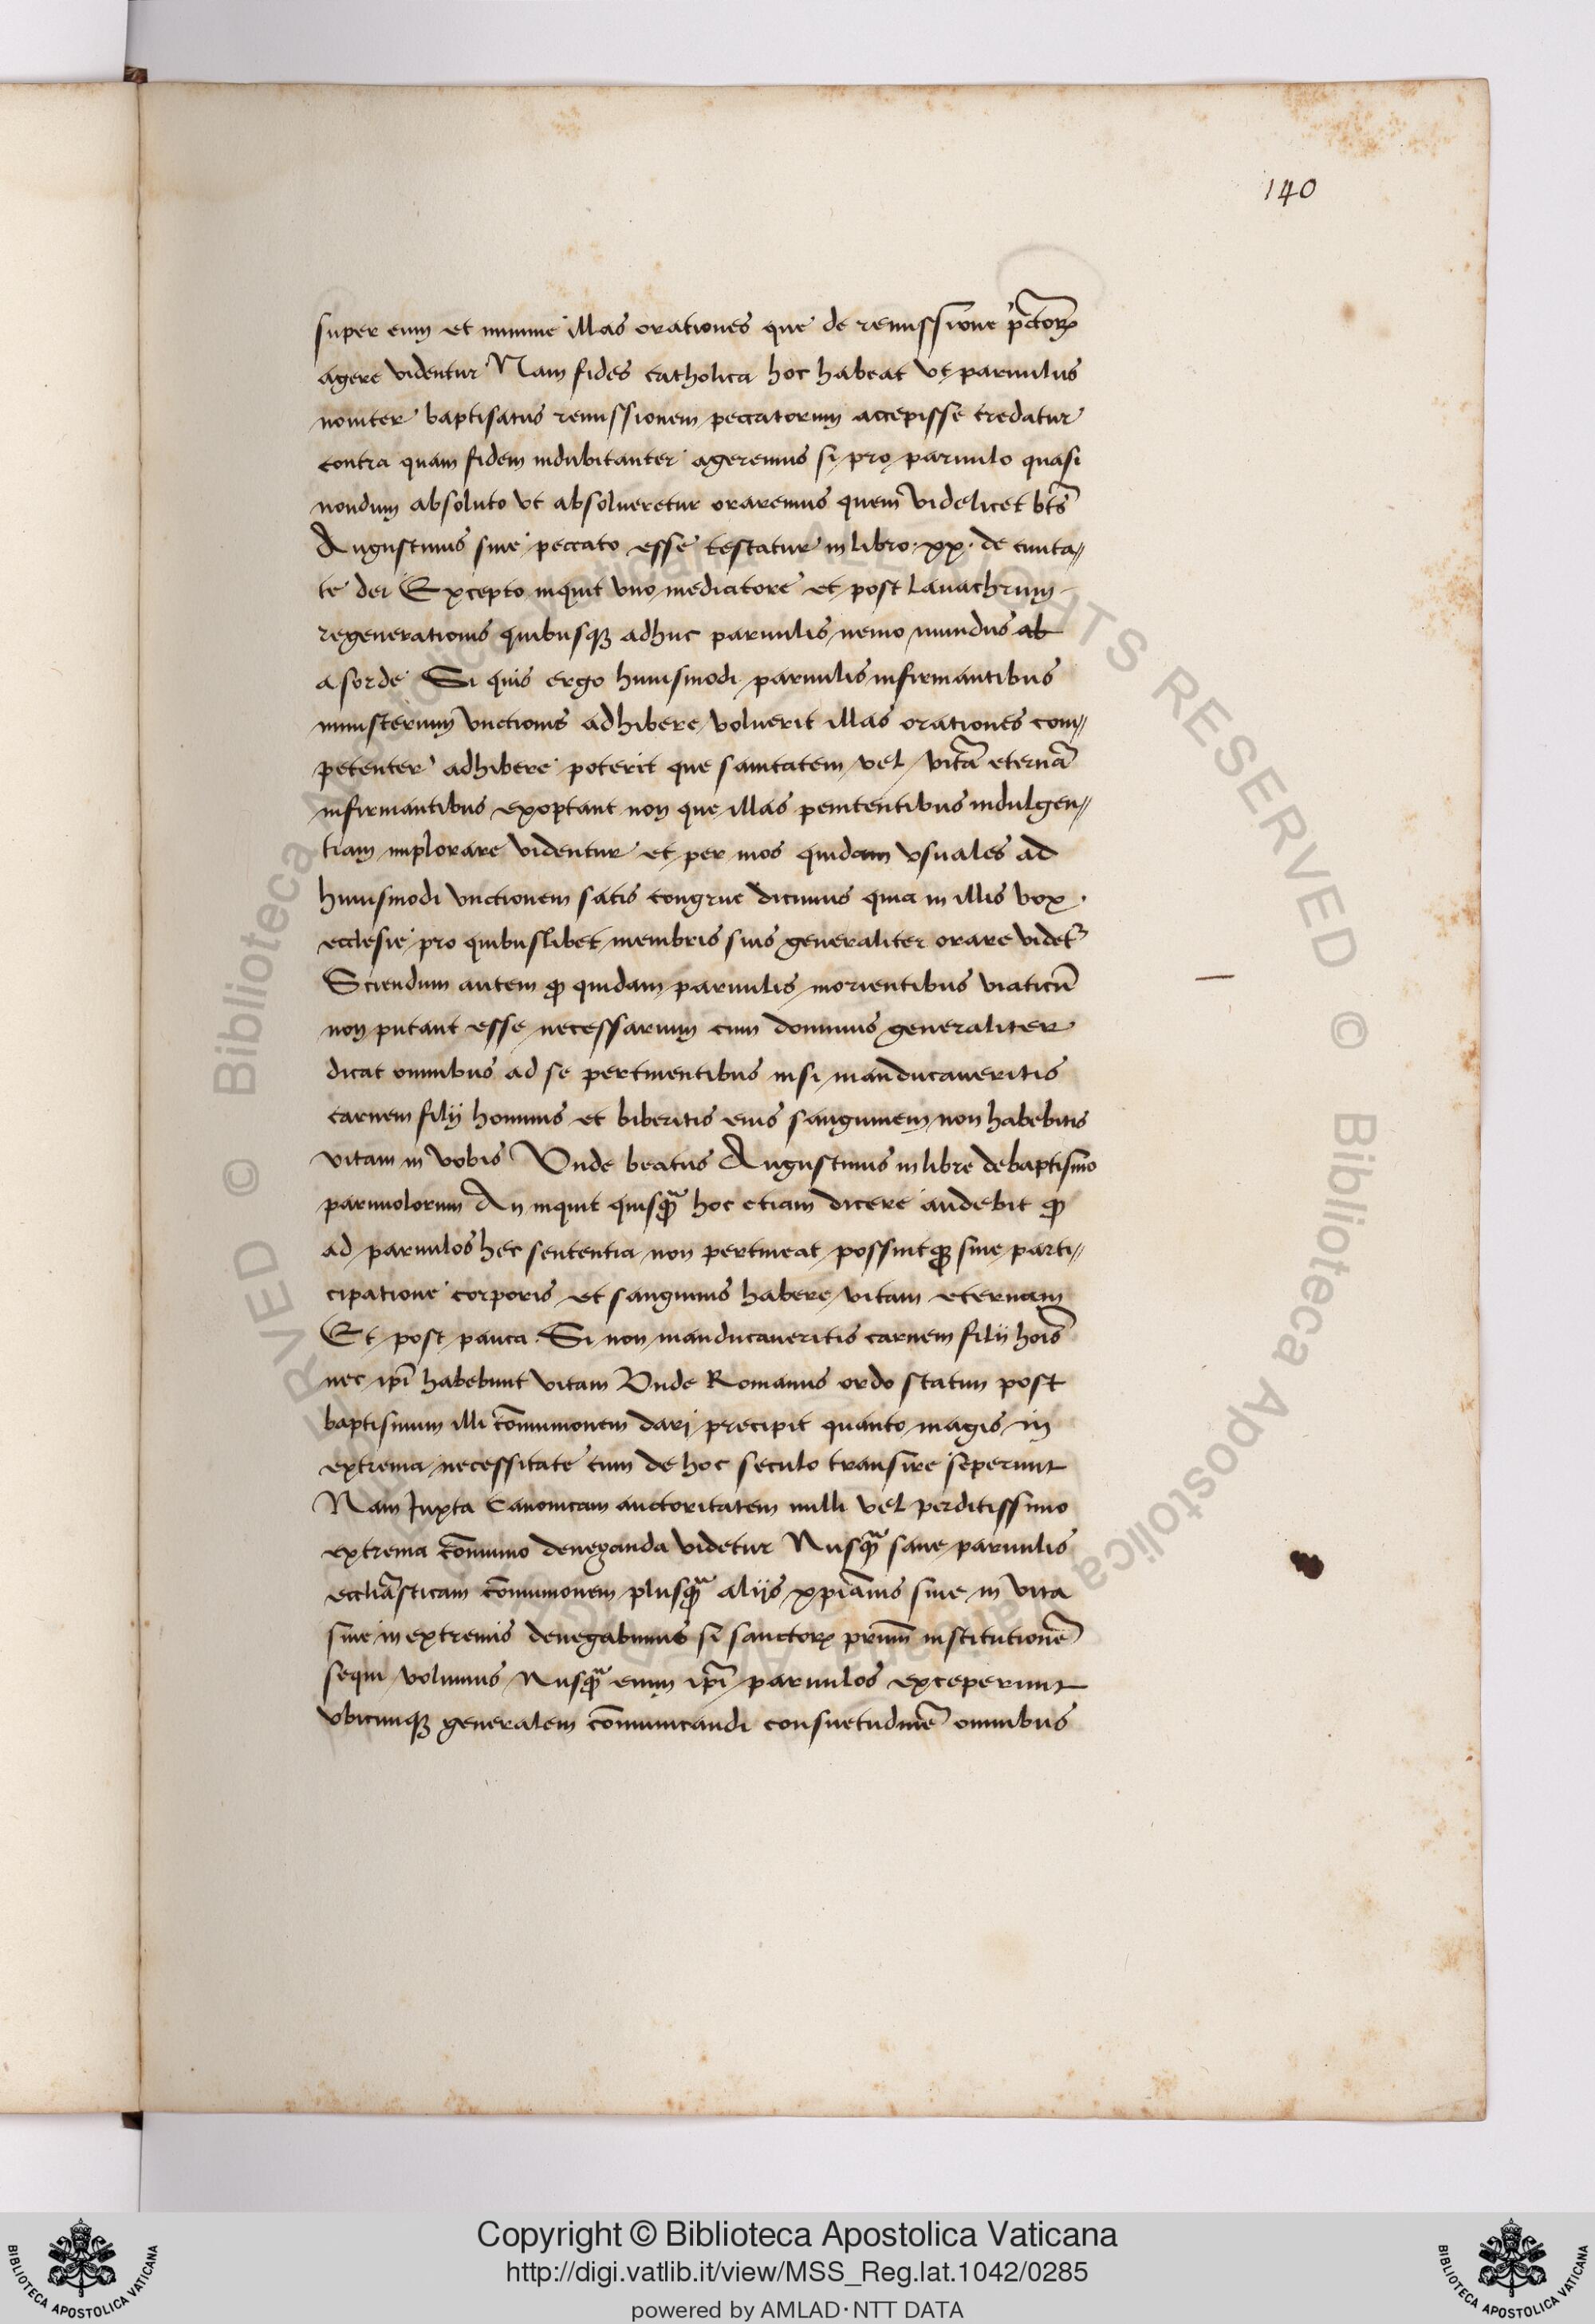 140
super eum et minime illas orationes que de remissione pctorꝝ
agere videntur Nam fides catholica hoc habeat vt paruulus
nouiter baptisatus remissionem peccatorum accepisse credatur
contra quam fidem indubitanter ageremus si pro paruulo quasi
nondum absoluto vt absolueretur oraremus quem videlicet bt̄s
Augustinus sine peccato esse testatur in libro · xx · de ciuita〃
te dei Excepto inquit vno mediatore et post lauachrum
regenerationis quibusqꝫ adhuc paruulis nemo mundus ab
a sorde Si quis ergo huiusmodi paruulis infirmantibus
ministerium vnctionis adhibere voluerit illas orationes com〃
petenter adhibere poterit que sanitatem vel vitā eternā
infirmantibus exoptant non que illas penitentibus indulgen〃
tiam implorare videntur et per nos quidam vsuales ad
huiusmodi vnctionem satis congrue dicimus quia in illis vox ·
ecclesie pro quibuslibet membris suis generaliter orare videt᷑
Sciendum autem ꝙ quidam paruulis morientibus viaticū
non putant esse necessarium cum dominus generaliter
dicat omnibus ad se pertinentibus nisi manducaueritis
carnem filij hominis et biberitis eius sanguinem non habebitis
vitam in vobis Vnde beatus Augustinus in libre de baptismo
paruuolorum An inquit quisꝙ̄ hoc etiam dicere audebit ꝙ
ad paruulos hec sententia non pertineat possintqꝫ sine parti〃
cipatione corporis et sanguinis habere vitam eternam
Et post pauca · Si non manducaueritis carnem filij hoīs
nec ip̄i habebunt vitam Vnde Romanus ordo statim post
baptismum illi cōmunionem dari precipit quanto magis in
extrema necessitate cum de hoc seculo transire seperunt
Nam Juxta Canonicam auctoritatem nulli vel perditissimo
extrema cōmunio deneganda videtur Nusꝙ̄ sane paruulis
eccliāsticam cōmunionem plusꝙ̄ alijs xp̄ianis siue in vita
siue in extremis denegabimus si sanctorꝝ prīmū institutionē
sequi volumus Nusꝙ̄ enim ip̄i paruulos exceperunt
vbicunqꝫ generalem cōmunicandi consuetudinē omnibus
Copyright © Biblioteca Apostolica Vaticana
http://digi.vatlib.it/view/MSS_Reg.lat.1042/0285
powered by AMLAD·NTT DATA